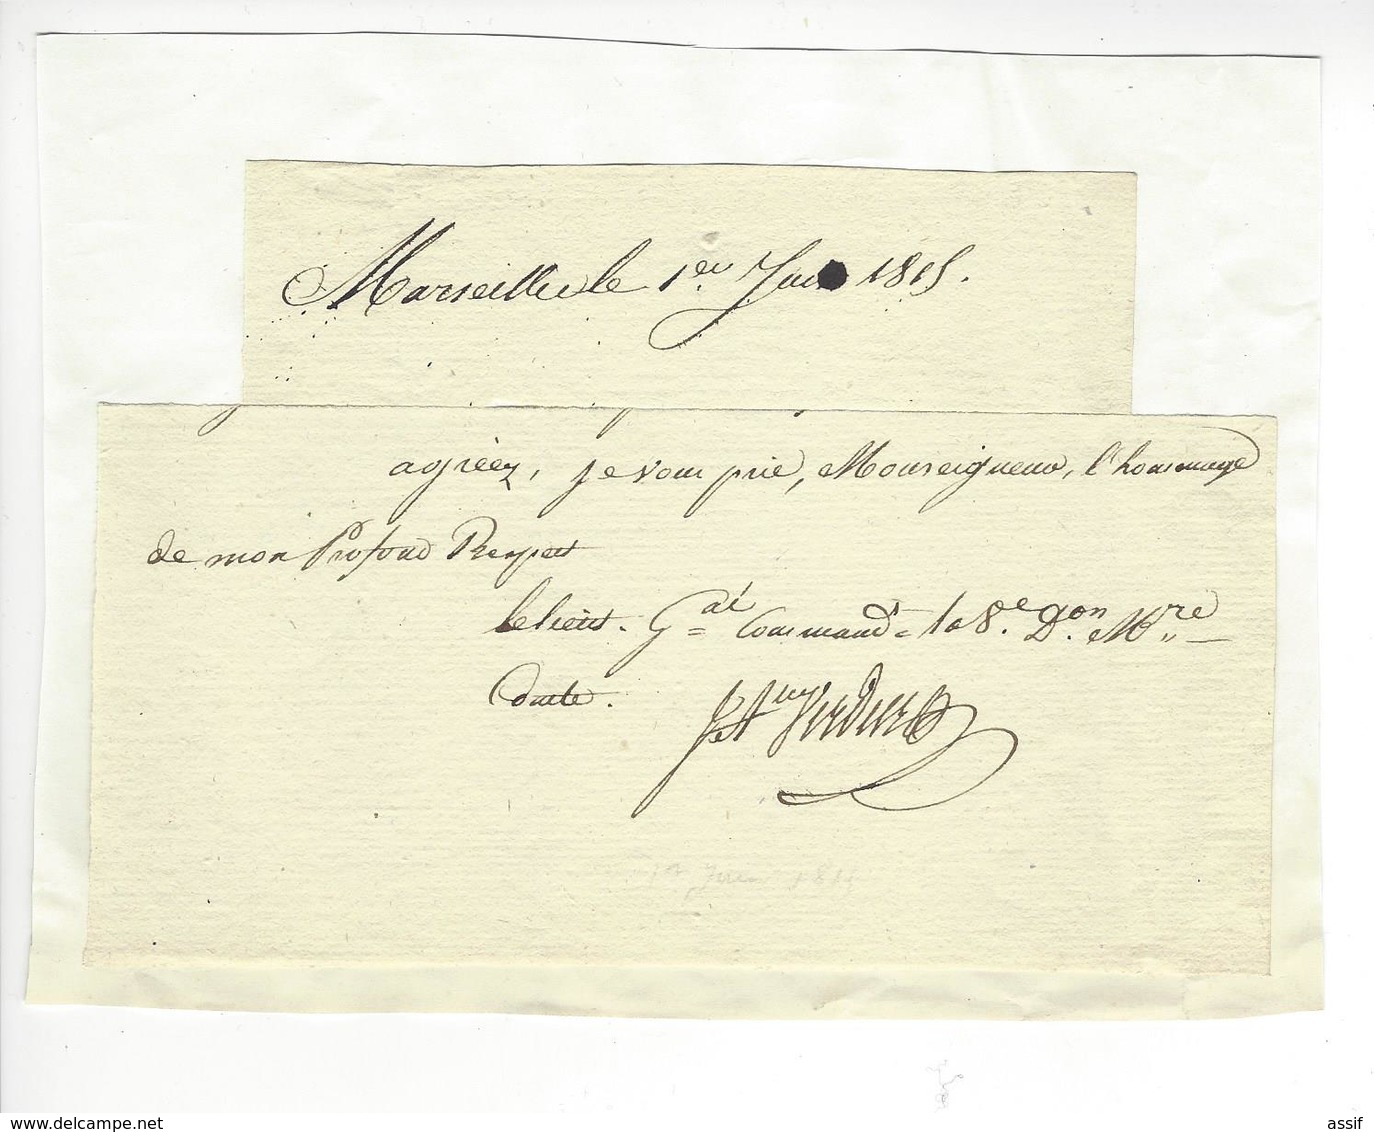 Marseille le 1er Juin 1815.
agréez, je vous prie, Monseigneur, l'hommage
de mon Profond Respect
le lieut. Gal Command. la 8.e Don. Mre
Comte. Verdier
1er Juin 1815
www.delcampe.net
assif